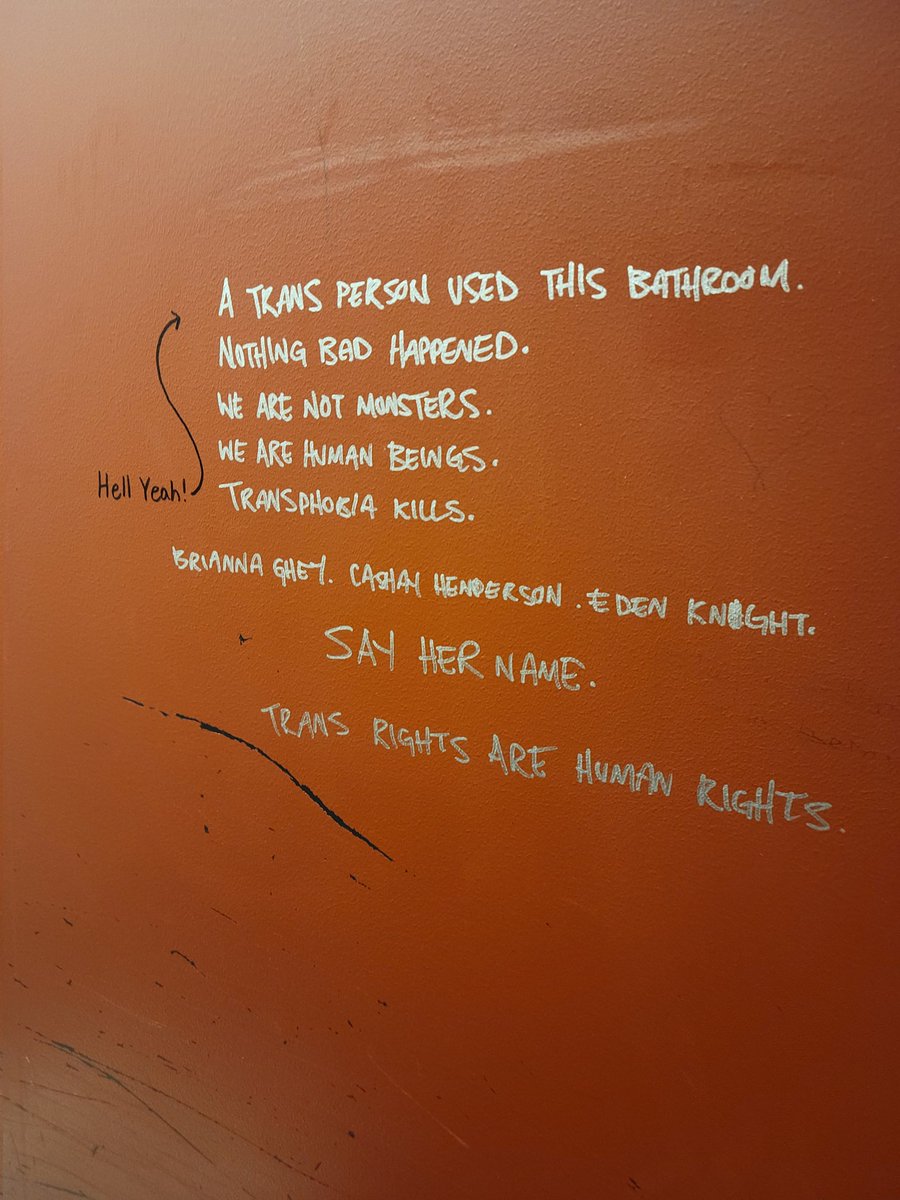 A TRANS PERSON USED THIS BATHROOM.
NOTHING BAD HAPPENED.
WE ARE NOT MONSTERS.
WE ARE HUMAN BEINGS.
Hell Yeah!
TRANSPHOBIA KILLS.
BRIANNA GHEY. CASHAY HENDERSON. EDEN KNIGHT.
SAY HER NAME.
TRANS RIGHTS ARE HUMAN RIGHTS.